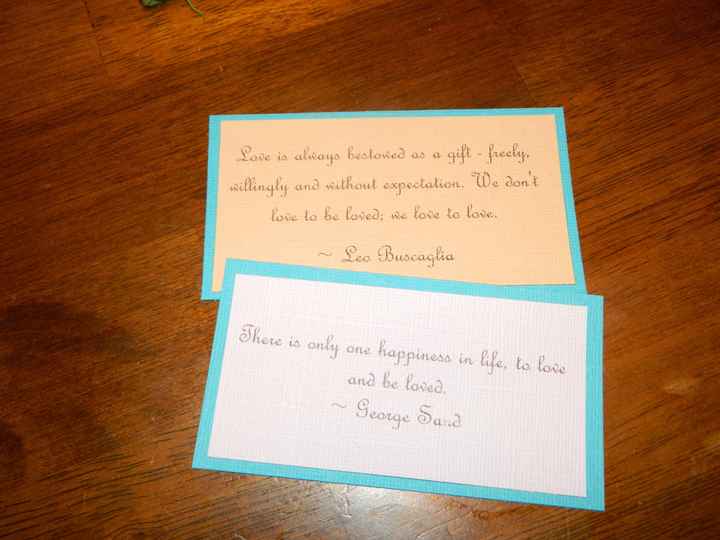 Love is always bestowed as a gift - freely,
willingly and without expectation. We don't
love to be loved; we love to love.
~ Leo Buscaglia
There is only one happiness in life, to love
and be loved.
~ George Sand